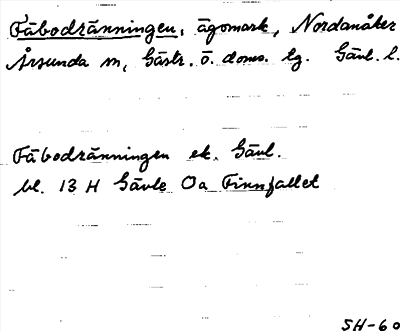 Fäbodränningen, ägomark, Nordanåker
Årsunda sn, Gästr. ö. doms. tg. Gävl. l.
Fäbodränningen ek. Gävl.
bl. 13 H Gävle Oa Finnfallet
SH-60